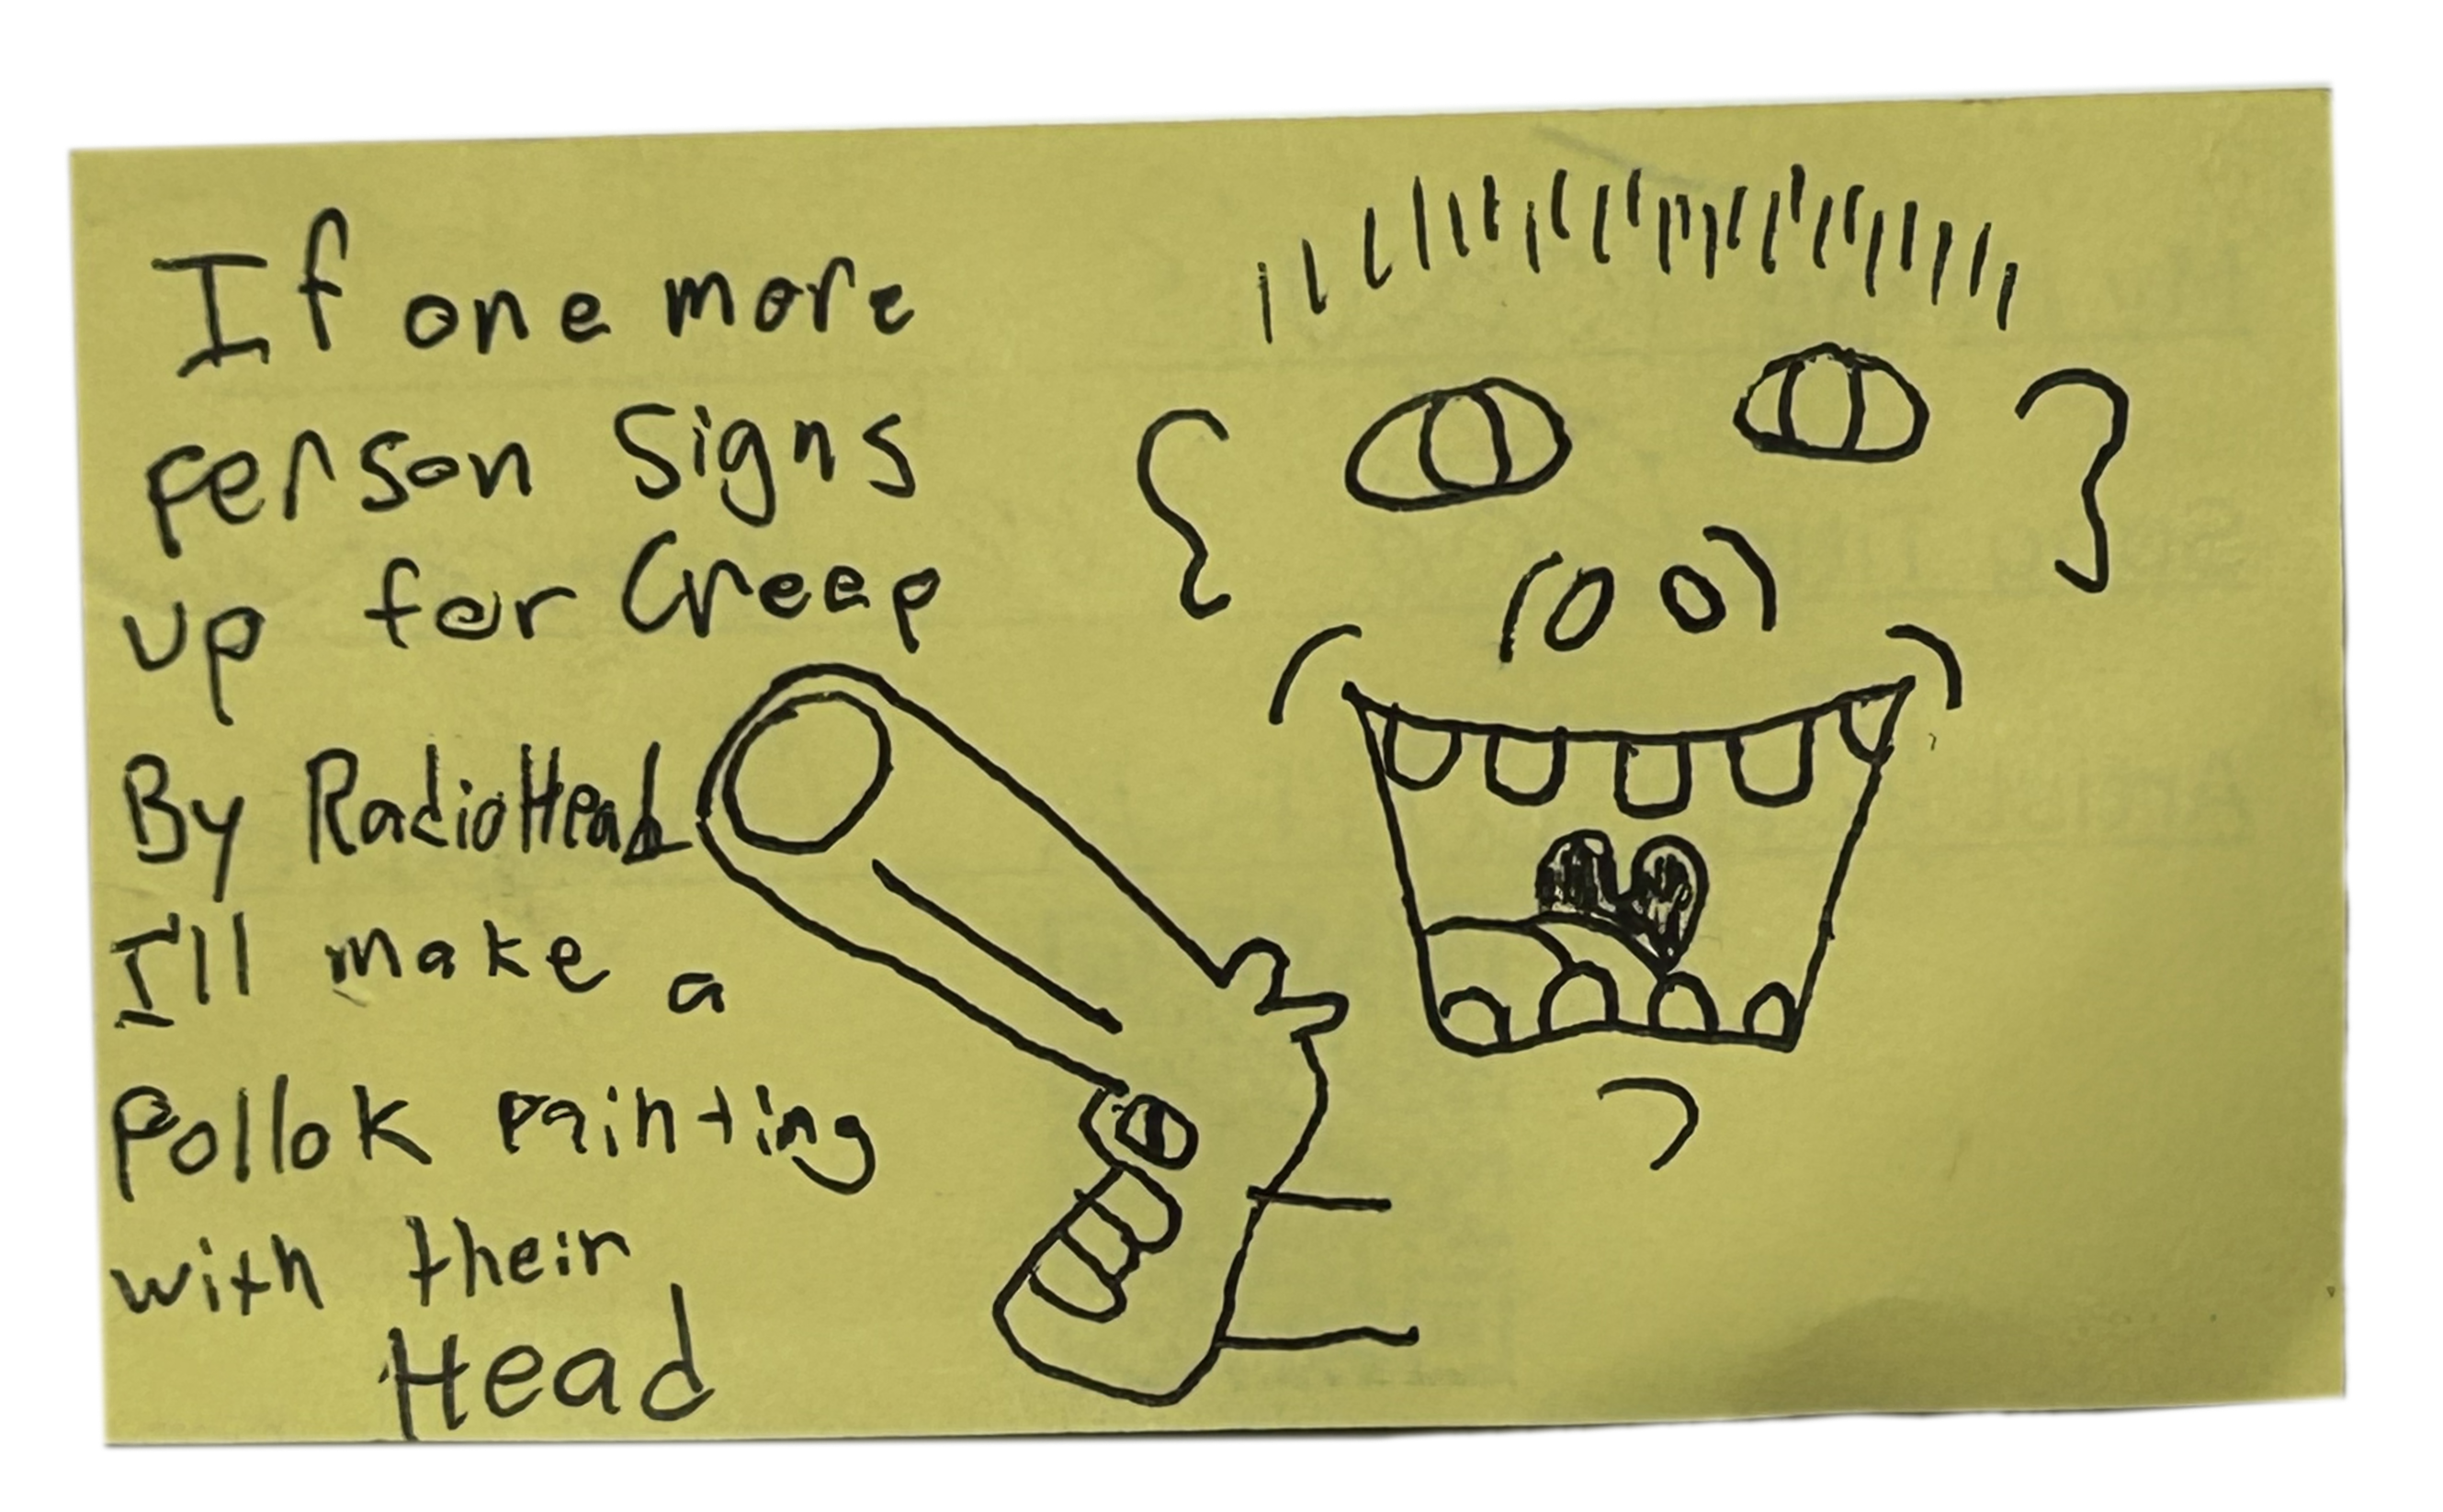 If one more
person Signs
up for Creep
By RadioHead
I'll make a
Pollok painting
with their
Head